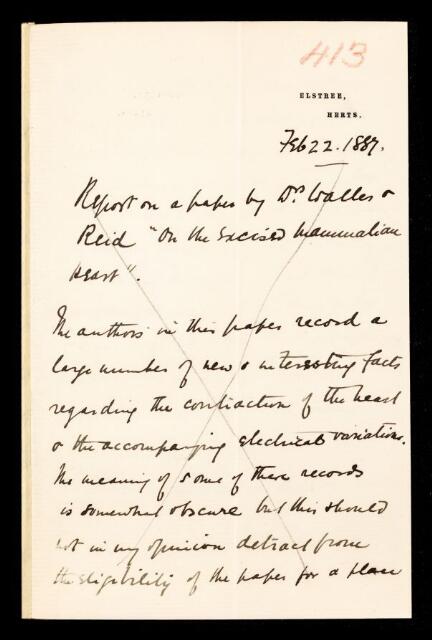 413
ELSTREE,
HERTS.
Feb 22. 1887.
Report on a paper by Drs Waller &
Reid "On the Excised Mammalian
Heart".
The authors in this paper record a
large number of new & interesting facts
regarding the contraction of the heart
& the accompanying electrical variations.
The meaning of some of these records
is somewhat obscure but this should
not in my opinion detract from
the eligibility of the paper for a place